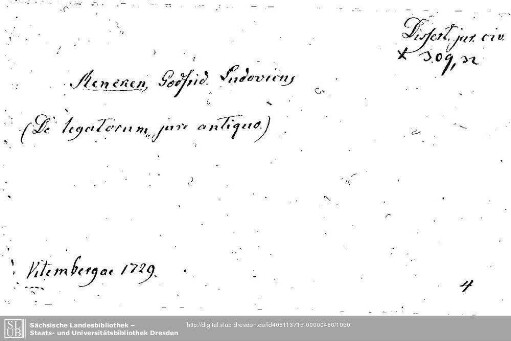 Dissert. jur. civ.
* 309, 32
Mencken, Godfrid. Ludovicus
(De legatorum, jure antiquo.)
Vitembergae 1729.
4
SLUB
Sächsische Landesbibliothek –
Staats- und Universitätsbibliothek Dresden